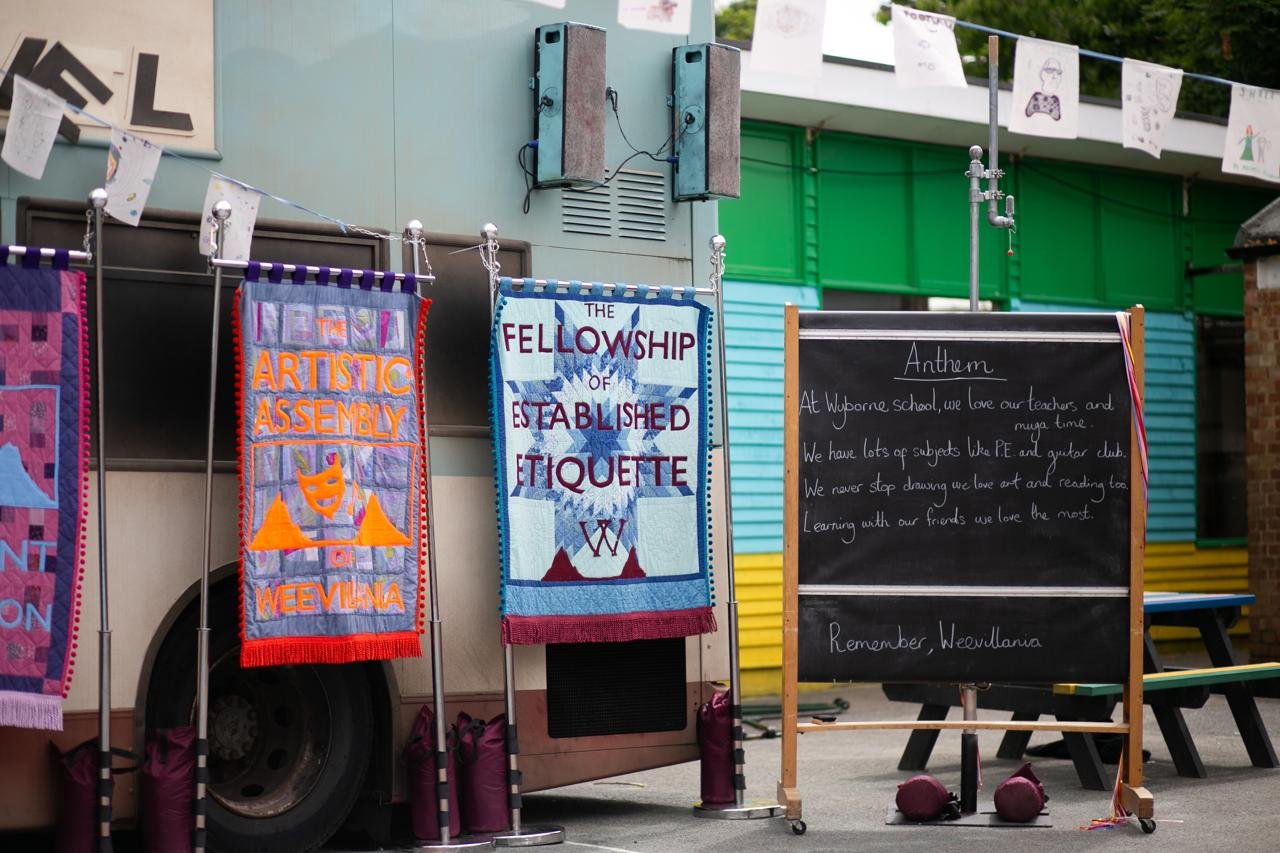 EL
NT
ON
THE
ARTISTIC
ASSEMBLY
OF
WEEVILLANIA
THE
FELLOWSHIP
OF
ESTABLISHED
ETIQUETTE
W
Anthem
At Wyborne school, we love our teachers and
muga time.
We have lots of subjects like P.E. and guitar club.
We never stop drawing we love art and reading too.
Learning with our friends we love the most.
Remember, Weevillania